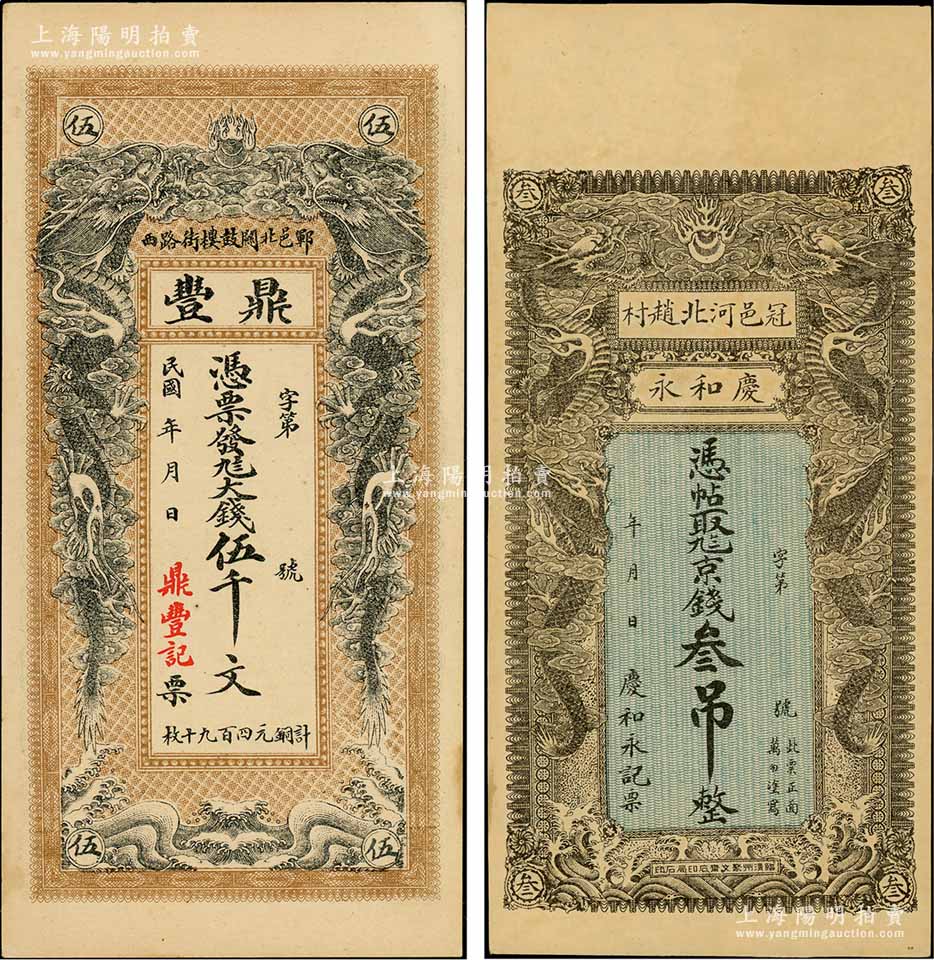 上海陽明拍賣
www.yangmingauction.com
伍
伍
鄆邑北關鼓樓街路西
鼎豐
字第
號
憑票發九大錢伍千文
民國
年
月
日
鼎豐記
票
計銅元四百九十枚
伍
伍
叁
叁
冠邑河北趙村
慶和永
字第
號
此票正面
萬勿塗寫
憑帖取京錢叁吊整
年
月
日
慶和永記票
臨清州聚文齋底印局石印
叁
叁
上海陽明拍賣
www.yangmingauction.com
上海陽明拍賣
www.yangmingauction.com